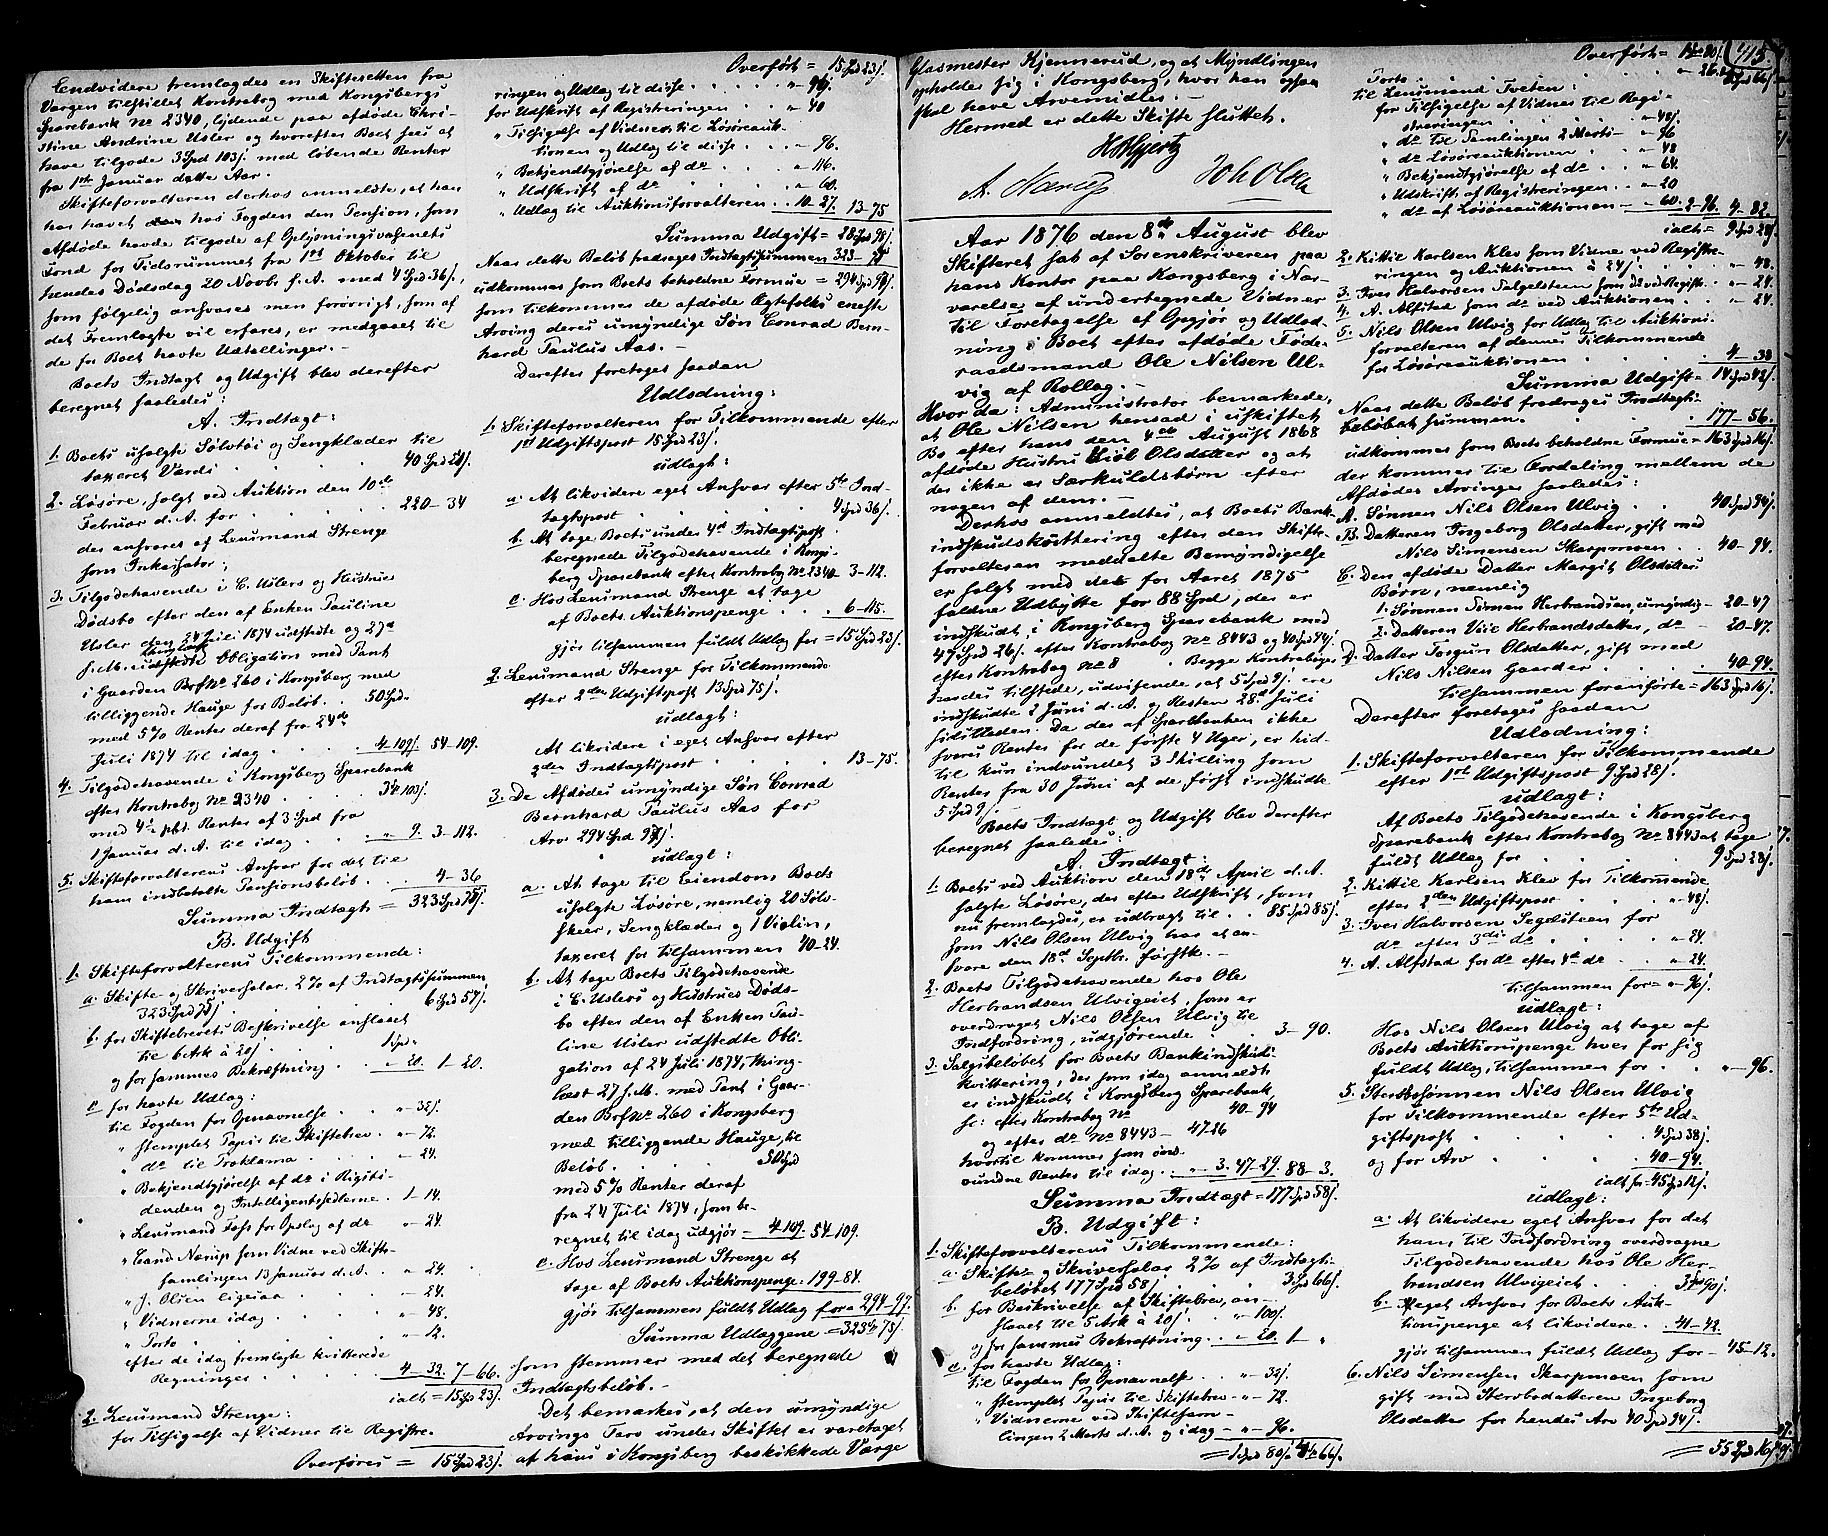 Endvidere fremlagdes en Skifteretten fra
Værgen tilstillet Kontrabog med Kongsbergs
Sparebank No 2340, lydende paa afdøde Chri-
stine Andrine Usler og hvorefter Boet sees at
have tilgode 3 Spd 103 s. med løbende Renter
fra 1ste Januar dette Aar.
Skifteforvalteren derhos anmeldte, at han
har hævet hos Fogden den Pension, som
Afdøde havde tilgode af Oplysningsvæsenets
Fond for Tidsrummet fra 1ste Oktober til
hendes Dødsdag 20 Novb. f. A. med 4 Spd 36 s.,
som følgelig ansvares men forøvrigt, som af
det Fremlagte vil erfares, er medgaaet til
de for Boet havte Udtællinger. -
Boets Indtægt og Udgift blev derefter
beregnet saaledes:
A. Indtægt:
1. Boets usolgte Sølvtøi og Sengklæder til
taxeret Værdi . . . 40 Spd 24 s.
2. Løsøre, solgt ved Auktion den 10de
Februar d. A. for . . . 220 - 34
der ansvares af Lensmand Strenge
som Inkassator;
3. Tilgodehavende i C. Uslers og Hustrues
Dødsbo efter den af Enken Pauline
Usler den 24 Juli 1874 udstedte og 27de
s. M. thinglæste Obligation med Pant
i Gaarden Brf No 260 i Kongsberg med
tilliggende Hauge for Beløb . . 50 Spd -
med 5 % Renter deraf fra 24de
Juli 1874 til idag . . . 4 - 109 s. 54 - 109.
4. Tilgodehavende i Kongsberg Sparebank
efter Kontrabog No 2340 . . . 3 Spd 103 s.
med 4½ pCt. Renter af 3 Spd fra
1 Januar d. A. til idag . . . " 9. 3 - 112.
5. Skifteforvalterens Ansvar for det til
ham indbetalte Pensionsbeløb . . . 4 - 36
Summa Indtægt = 323 Spd 75 s.
B. Udgift
1. Skifteforvalterens Tilkommende:
a. Skifte- og Skriversalær, 2 % af Indtægtssummen
323 Spd 75 s. . . . 6 Spd 57 s.
b. for Skiftebrevets Beskrivelse anslaaet
til 6 Ark à 20 s. . . . 1 Spd -
og for sammes Bekræftning . . - 20. 1 - 20.
c. for havte Udlæg:
til Fogden for Opnavnelse . . " - 32 s.
" stemplet Papir til Skiftebrev . . " - 72.
" do til Proklama . . . " - 24.
" Bekjendtgjørelse af do i Rigsti-
denden og Intelligentssedlerne . 1 - 14.
" Lensmand Foss for Opslag af do " - 24.
" Cand Nærup som Vidne ved Skifte-
samlingen 13 Januar d. A. . . " - 24.
" J. Olsen ligesaa . . . " - 24.
" Vidnerne idag . . . " - 48.
" Porto . . . " - 12.
efter de idag fremlagte kvitterede
Regninger . . . 4 - 32. 7 - 66.
ialt = 15 Spd 23 s.
2. Lensmand Strenge:
for Tilsigelse af Vidner til Registre-
Overføres = 15 Spd 23 s.
Overført = 15 Spd 23 s.
ringen og Udlæg til disse . . . " - 96 s.
for Udskrift af Registreringen . . . " - 40
" Tilsigelse af Vidner til Løsøreauk-
tionen og Udlæg til disse . . " - 96.
" Bekjendtgjørelse af do . . . " - 116.
" Udskrift af do . . . " - 60.
" Udlæg til Auktionsforvalteren . . 10 - 27. 13 - 75
Summa Udgift = 28 Spd 98 s.
Naar dette Beløb fradrages Indtægtssummen 323 - 75
udkommer som Boets beholdne Formue = 294 Spd 97 s.
som tilkommer de afdøde Ægtefolks eneste
Arving deres umyndige Søn Conrad Bern-
hard Paulus Aas. -
Derefter foretoges saadan
Udlodning:
1. Skifteforvalteren for Tilkommende efter
1ste Udgiftspost 15 Spd 23 s.
udlagt:
a. At likvidere eget Ansvar efter 5te Ind-
tægtspost . . . 4 Spd 36 s.
b. At tage Boets under 4de Indtægtspost
beregnede Tilgodehavende i Kongs-
berg Sparebank efter Kontrabog No 2340 3 - 112.
c. Hos Lensmand Strenge at tage
af Boets Auktionspenge . . . 6 - 115.
gjør tilsammen fuldt Udlæg for = 15 Spd 23 s.
2. Lensmand Strenge for Tilkommende
efter 2den Udgiftspost 13 Spd 75 s.
udlagt:
At likvidere i eget Ansvar efter
2den Indtægtspost . . . 13 - 75.
3. De Afdødes umyndige Søn Conrad
Bernhard Paulus Aas for
Arv 294 Spd 97 s.
udlagt:
a. At tage til Eiendom Boets
usolgte Løsøre, nemlig 20 Sølv-
skeer, Sengklæder og 1 Violin,
taxeret for tilsammen 40 - 24.
b. At tage Boets Tilgodehavende
i C. Uslers og Hustrues Døds-
bo efter den af Enken Pau-
line Usler udstedte Obli-
gation af 24 Juli 1874, thing-
læst 27 s. M. med Pant i Gaar-
den Brf No 260 i Kongsberg
med tilliggende Hauge, til
Beløb . . . 50 Spd
med 5 % Renter deraf
fra 24 Juli 1874, som be-
regnet til idag udgjør - 4 - 109. 54 - 109.
c. Hos Lensmand Strenge at
tage af Boets Auktionspenge: 199 - 84.
gjør tilsammen fuldt Udlæg for = 294 - 97.
Summa Udlæggene = 323 Spd 75 s.
som stemmer med det beregnede
Indtægtsbeløb. -
Det bemærkes, at den umyndige
Arvings Tarv under Skiftet er varetaget
af hans i Kongsberg beskikkede Værge
Glasmester Kjennerud, og at Myndlingen
opholder sig i Kongsberg, hvor han ogsaa
skal have Arvemidler. -
Hermed er dette Skifte sluttet.
A. Nærup Joh Olsen
Aar 1876 den 8de August blev
Skifteret sat af Sorenskriveren paa
hans Kontor paa Kongsberg i Nær-
værelse af undertegnede Vidner
til Foretagelse af Opgjør og Udlod-
ning i Boet efter afdøde Føde-
raadsmand Ole Nilsen Ul-
vig af Rollag. -
Hvor da: Administrator bemærkede,
at Ole Nilsen hensad i uskiftet
Bo efter hans den 4de August 1868
afdøde Hustru Liv Olsdatter og at
der ikke er Særkuldsbørn efter
nogen af dem. -
Derhos anmeldtes, at Boets Bank-
indskudskvittering efter den Skifte-
forvalteren meddelte Bemyndigelse
er solgt med det for Aaret 1875
faldne Udbytte for 88 Spd, der er
indskudt i Kongsberg Sparebank med
47 Spd 26 s. efter Kontrabog No 8443 og 40 Spd 94 s.
efter Kontrabog No 8 . Begge Kontrabøger
havdes tilstede, udvisende, at 5 Spd 9 s. ere
indskudte i Juni d. A. og Resten 28de Juli
sidstleden. Da der af Sparebanken ikke
svares Renter for de første 4 Uger, er hid-
til kun indvundet 3 Skilling som
Renter fra 30 Juni af de først indskudte
5 Spd 9 s.
Boets Indtægt og Udgift blev derefter
beregnet saaledes:
A. Indtægt:
1. Boets ved Auktion den 18de April d. A.
solgte Løsøre, der efter Udskrift, som
nu fremlagdes, er udbragt til . . 85 Spd 85 s.
som Nils Olsen Ulvig har at an-
svare den 18de Septbr. førstk. -
2. Boets Tilgodehavende hos Ole
Herbrandsen Ulvigeiet, som er
overdraget Nils Olsen Ulvig til
Indfordring, udgjørende . . 3 - 90.
3. Salgsbeløbet for Boets Bankindskuds-
kvittering, der som idag anmeldt
er indskudt i Kongsberg Sparebank,
sc: efter Kontrabog No 40 - 94
og efter do No 8443 - 47 26
hvortil kommer som ind-
vundne Renter til idag . . " - 3. 47 - 29. 88 - 3.
Summa Indtægt = 177 Spd 58 s.
B. Udgift:
1. Skifteforvalterens Tilkommende:
a. Skifte- og Skriversalær 2 % af Indtægts-
beløbet 177 Spd 58 s. . . . 3 Spd 66 s.
b. for Beskrivelse af Skiftebrev, an-
slaaet til 5 Ark à 20 s. . " 100 s.
og for sammes Bekræftning . . " 20. 1 - "
c. for havte Udlæg:
til Fogden for Opnavnelse . . " - 32 s.
" stemplet Papir til Skiftebrev - " - 72.
" Vidnerne ved Skiftesam-
lingen 2 Marts d. A. og idag - " - 96.
= 1 Spd 80 s. 4 Spd 66 s.
Overført = 1 Spd 80 s. 4 Spd 66 s.
415.
Porto . . . " - 26.
til Lensmand Tveten:
for Tilsigelse af Vidner til Regi-
streringen . . . " - 48 s.
" do til Samlingen 2 Marts - " - 96
" do Løsøreauktionen . . " - 48
" Bekjendtgjørelse af do . . " - 64.
" Udskrift af Registreringen . . " - 20
" do af Løsøreauktionen - " - 60. 2 - 96. 4 - 82.
ialt = 9 Spd 28 s.
2. Kittil Karlsen Klev som Vidne ved Registre-
ringen og Auktionen à 24 s. . . " - 48.
3. Iver Halvorsen Sagelsteen som do ved Registr. . " - 24.
4. A. Alfstad som do ved Auktionen . . " - 24.
5. Nils Olsen Ulvig for Udlæg til Auktions-
forvalteren af dennes Tilkommende
for Løsøreauktionen . . . 4 - 38
Summa Udgift = 14 Spd 42 s.
Naar dette Beløb fradrages Indtægts-
beløbet Summen . . . 177 - 58.
udkommer som Boets beholdne Formue = 163 Spd 16 s.
der kommer til Fordeling mellem de
Afdødes Arvinger saaledes:
A. Sønnen Nils Olsen Ulvig . . 40 Spd 94 s.
B. Datteren Ingeborg Olsdatter, gift med
Nils Simensen Skarpmoen . . 40 - 94.
C. Den afdøde Datter Margit Olsdatters
Børn, nemlig
1. Sønnen Simen Herbrandsen, umyndig - 20 - 47
2. Datteren Viie Herbrandsdatter, do - 20 - 47.
D. Datter Torgun Olsdatter, gift med
Nils Nilsen Gaarder . . . 40 - 94.
tilsammen foranførte = 163 Spd 16 s.
Derefter foretoges saadan
Udlodning:
1. Skifteforvalteren for Tilkommende
efter 1ste Udgiftspost 9 Spd 28 s.
udlagt:
Af Boets Tilgodehavende i Kongsberg
Sparebank efter Kontrabog No 8443 at tage
fuldt Udlæg for . . . 9 Spd 28 s.
2. Kittil Karlsen Klev for Tilkommende
efter 2den Udgiftspost . . . " - 48 s.
3. Iver Halvorsen Sagelsteen for
do efter 3die do . . . " - 24.
4. A. Alfstad for do efter 4de do . . " - 24.
tilsammen for = " - 96 s.
udlagt:
Hos Nils Olsen Ulvig at tage af
Boets Auktionspenge hver for sig
fuldt Udlæg, tilsammen for . . " - 96.
5. Sterbsønnen Nils Olsen Ulvig
for Tilkommende efter 5te Ud-
giftspost . . . 4 Spd 38 s.
og for Arv . . . 40 - 94.
ialt for - 45 Spd 12 s.
udlagt:
a. At likvidere eget Ansvar for det
ham, til Indfordring overdragne
Tilgodehavende hos Ole Her-
brandsen Ulvigeiet . . 3 Spd 90 s.
b. I eget Ansvar for Boets Auk-
tionspenge at likvidere . . 41 - 42.
gjør tilsammen fuldt Udlæg for - 45 - 12.
6. Nils Simensen Skarpmoen som
gift med Sterbdatteren Ingeborg
Olsdatter for hendes Arv 40 Spd 94 s.
= 55 Spd 16 s.